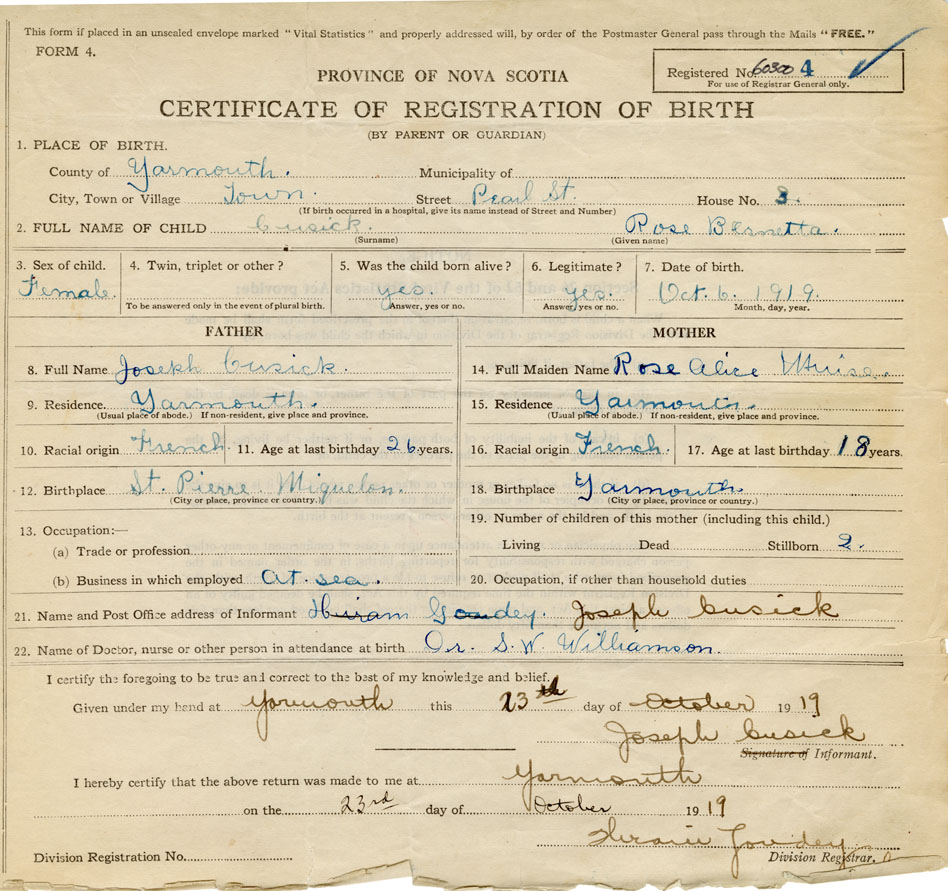 This form if placed in an unsealed envelope marked "Vital Statistics" and properly addressed will, by order of the Postmaster General pass through the Mails "FREE."
FORM 4.
PROVINCE OF NOVA SCOTIA
Registered No. 60300 4
For use of Registrar General only.
CERTIFICATE OF REGISTRATION OF BIRTH
(BY PARENT OR GUARDIAN)
1. PLACE OF BIRTH.
County of Yarmouth. Municipality of
City, Town or Village Town. Street Pearl St. House No. 3.
(If birth occurred in a hospital, give its name instead of Street and Number)
2. FULL NAME OF CHILD Cusick. Rose Bernetta.
(Surname) (Given name)
3. Sex of child. 4. Twin, triplet or other? 5. Was the child born alive? 6. Legitimate? 7. Date of birth.
Female. yes. yes. Oct. 6. 1919.
To be answered only in the event of plural birth. Answer, yes or no. Answer, yes or no. Month, day, year.
FATHER MOTHER
8. Full Name Joseph Cusick. 14. Full Maiden Name Rose Alice Muise.
9. Residence. Yarmouth. 15. Residence Yarmouth.
(Usual place of abode.) If non-resident, give place and province. (Usual place of abode.) If non-resident, give place and province.
10. Racial origin French 11. Age at last birthday 26 years. 16. Racial origin French. 17. Age at last birthday 18 years.
12. Birthplace St. Pierre Miquelon. 18. Birthplace Yarmouth
(City or place, province or country.) (City or place, province or country.)
13. Occupation:— 19. Number of children of this mother (including this child.)
(a) Trade or profession Living Dead Stillborn 2.
(b) Business in which employed At. sea. 20. Occupation, if other than household duties
21. Name and Post Office address of Informant Hiram Goudey. Joseph Cusick
22. Name of Doctor, nurse or other person in attendance at birth Dr. S. W. Williamson.
I certify the foregoing to be true and correct to the best of my knowledge and belief.
Given under my hand at Yarmouth this 23th day of October 1919
Joseph Cusick
Signature of Informant.
I hereby certify that the above return was made to me at Yarmouth
on the 23rd day of October 1919
Hiram Goudey
Division Registration No. Division Registrar.